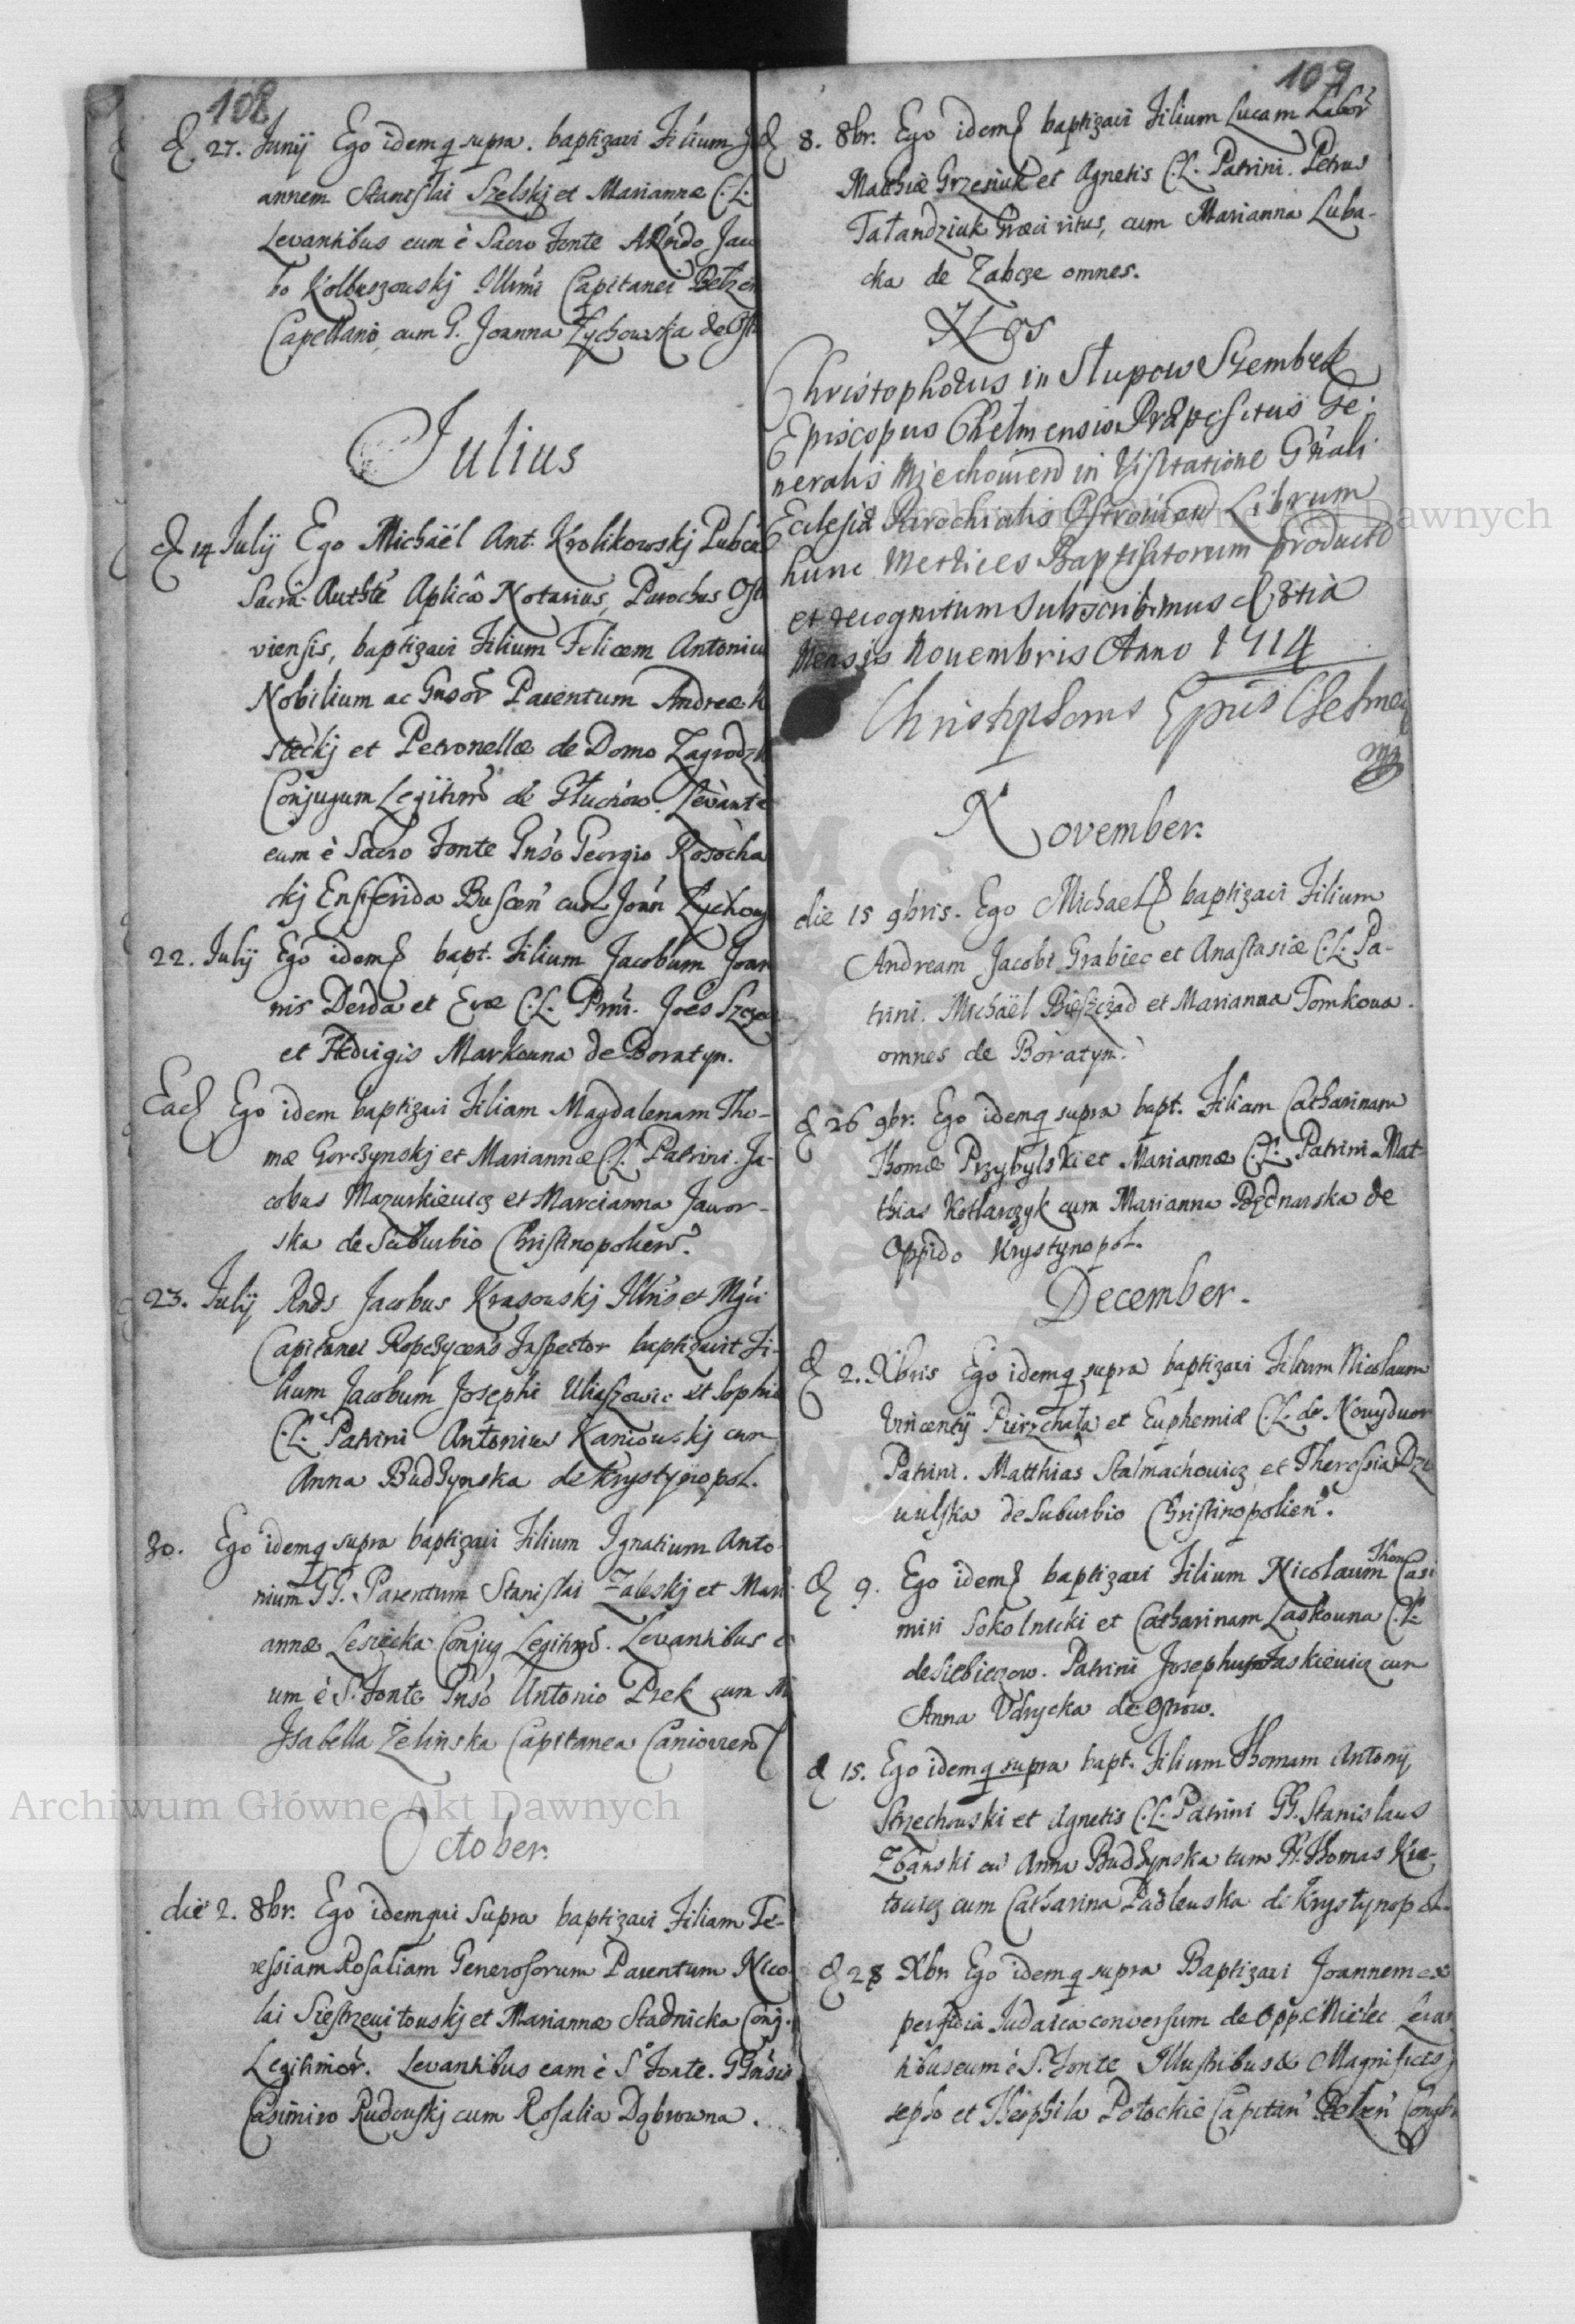 108
d 27. Junij Ego idemq supra. baptizavi Filium Jo
annem Stanislai Szelskj et Mariannæ C.L.
Levantibus eum è Sacro Fonte ARndo Jaco
bo Kolbuszowskj Illrmi Capitanei Belzen
Capellano cum G. Joanna Zychowska de Ost
Julius
d 14 Julij Ego Michaël Ant. Krolikowskj Publcus
Sacrâ Authte Aplicâ Notarius, Parochus Ost
viensis, baptizavi Filium Felicem Antonium
Nobilium ac Gnsor Parentum Andreæ K
steckj et Petronellæ de Domo Zagrodzk
Conjugum Legitim de Głuchow. Levante
eum è Sacro Fonte Gnso Georgio Rosocha
ckj Ensiferida Buscen cum Joan Zychow
22. Julij Ego idem bapt. Filium Jacobum Joan
nis Derda et Evæ C.L. Prni. Joes Szcze
et Hedvigis Markowna de Boratyn.
Ead Ego idem baptizavi Filiam Magdalenam Tho-
mæ Gorczynskj et Mariannæ C.L. Patrini. Ja-
cobus Mazurkiewicz et Marcianna Jawor-
ska de Suburbio Christinopolien.
23. Julij Rnds Jacobus Krasowskj Illris et Mgci
Capitanei Ropczycens Inspector baptizavit Fi-
lium Jacobum Josephi Uliaszowic et Sophiæ
C.L. Patrini Antonius Kaniowskj cum
Anna Budzynska de Krystynopol.
30. Ego idemq supra baptizavi Filium Ignatium Anto
nium GG. Parentum Stanislai Zaleskj et Mari
annæ Lesiecka Conjug Legitim. Levantibus e
um è S. Fonte Gnso Antonio Psek cum M
Isabella Zelinska Capitanea Canioven
October.
die 2. 8br. Ego idemqui supra baptizavi Filiam Te-
ressiam Rosaliam Generosorum Parentum Nico
lai Siestrzewitowskj et Mariannæ Stadnicka Conj.
Legitimor. Levantibus eam è S. Fonte. GGnsis
Casimiro Rudowskj cum Rosalia Dąbrowna.
109
d 8. 8br. Ego idem baptizavi Filium Lucam Labor
Matthiæ Grzesiuk et Agnetis C.L. Patrini. Petrus
Tatandziuk Græci ritus, cum Marianna Luba-
cka de Zabcze omnes.
Nos
Christophorus in Słupow Szembek
Episcopus Chelmensis Præpositus Ge-
neralis Miechovien in Visitatione Gnali
Ecclesiæ Parochialis Ostrovien Librum
hunc Metrices Baptisatorum productũ
et recognitum subscribimus d 8tia
Mensis Novembris Anno 1714
Christophorus Epus Chelmen
mp
November.
die 15 9bris. Ego Michael baptizavi Filium
Andream Jacobi Grabiec et Anastasiæ C.L. Pa-
trini. Michaël Bieszczad et Marianna Tomkowa.
omnes de Boratyn.
d 26 9br. Ego idemq supra bapt. Filiam Catharinam
Thomæ Przybylski et Mariannæ C.L. Patrini Mat-
thias Kotlarczyk cum Marianna Bednarska de
Oppido Krystynopol.
December.
d 2. Xbris Ego idemq supra baptizavi Filium Nicolaum
Vincentij Pierzchała et Euphemiæ C.L. de Nowydwor
Patrini. Matthias Stalmachowicz et Theressia Dzi
wulska de Suburbio Christinopolien.
d 9. Ego idem baptizavi Filium Nicolaum Thom Casi
miri Sokolnicki et Catharinam Laskowna C.L.
de Siebieczow. Patrini Josephus Jaskiewicz cum
Anna Udrycka de Ostrow.
d 15. Ego idemq supra bapt. Filium Thomam Antonij
Strzechowski et Agnetis C.L. Patrini GG. Stanislaus
Zbanski cu Anna Budzynska tum H. Thomas Kie-
towicz cum Catharina Padlewska de Krystynopol.
d 28 Xbr Ego idemq supra Baptizavi Joannem ex
perfidia Judaica conversum de Opp. Mielec Levan
tibus eum è S. Fonte Illustribus & Magnificis J
sepho et Theophila Potockie Capitan Belzen Conjgb
Archiwum Główne Akt Dawnych
Archiwum Główne Akt Dawnych